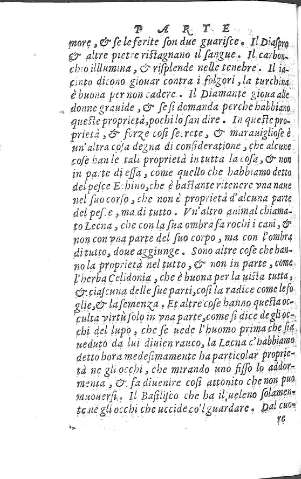 PARTE
more, & se le ferite son due guarisce. Il Diaspro
& altre pietre ristagno il sangue. Il carbon-
chio illumina, & risplende nelle tenebre. Il ia-
cinto dicono giouar contra i folgori, la turchina
è buona per non cadere. Il Diamante gioua alle
donne grauide, & se si domanda perche habbiano
queste proprietà, pochi lo san dire. In queste pro-
prietà, & forze così secrete, & marauigliose è
un'altra cosa degna di consideratione, che alcune
cose han le tali proprietà in tutta la cosa, & non
in parte di essa, come quello che habbiamo detto
del pesce Echino, che è bastante ritenere vna naue
nel suo corso, che non è proprietà d'alcuna parte
del pesce, ma di tutto. Vn'altro animal chiama-
to Lecna, che con la sua ombra fa rochi i cani, &
non con vna parte del suo corpo, ma con l'ombra
di tutto, doue aggiunge. Sono altre cose che han-
no la proprietà nel tutto, & non in parte, come
l'herba Celidonia, che è buona per la uista tutta,
& ciascuna delle sue parti, così la radice come le fo
glie, & la semenza. Et altre cose hanno questa oc-
culta virtù solo in vna parte, come si dice degli oc-
chi del lupo, che se uede l'huomo prima che sia
ueduto da lui diuien rauco, la Lecna c'habbiamo
detto hora medesimamente ha particolar proprie-
tà ne gli occhi, che mirando uno fisso lo addor-
menta, & fa diuenire così attonito che non può
mouersi. Il Basilisco che ha il ueleno solamen-
te ne gli occhi che uccide co'l guardare. Dal cuo-